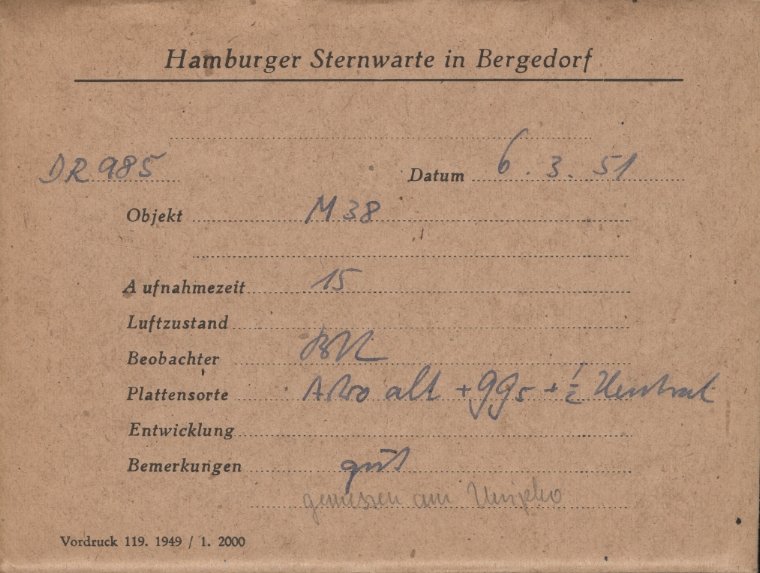 Hamburger Sternwarte in Bergedorf
DR 985 Datum 6. 3. 51
Objekt M 38
Aufnahmezeit 15
Luftzustand
Beobachter
Plattensorte alt + gg5 + 1/2 Neutral
Entwicklung
Bemerkungen gut
gemessen am
Vordruck 119. 1949 / 1. 2000